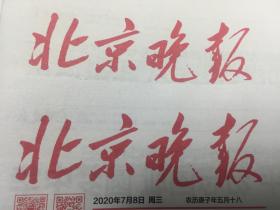 北京晚报
北京晚报
2020年7月8日 周三 农历庚子年五月十八